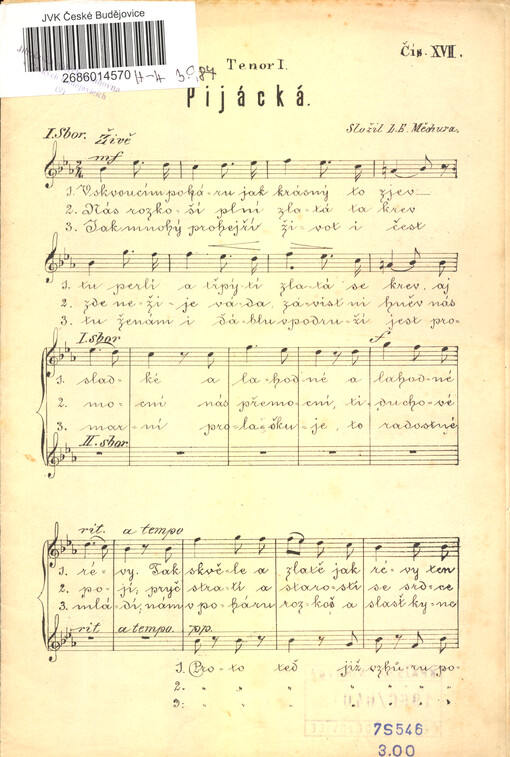 JVK České Budějovice
2686014570
H-H 3.0,84
Tenor I.
Čís. XVII.
Pijácká.
I. Sbor. Živě
Složil L. E. Měchura.
mf
1. V skvoucím pohá-ru jak krásný to zjev
2. Nás rozko-ší plní zla-tá ta krev
3. Tak mnohý prohejří ži-vot i čest
1. tu perlí a třpytí zlatá se krev, aj
2. zde ne-ži-je vá-da, zá-vist ni hněv nás
3. tu ženám i ďáblu v područ-í jest pro-
I. sbor
f
1. slad-ké a la-hod-né a lahod-né
2. mo-cní nás přemo-cní, ti ducho-vé
3. mar-ní pro-la-šku-je, to radostné
II. sbor
rit. a tempo
1. ré-vy. Tak skvě-le a zlatě jak ré-vy ten
2. po-jí, pryč stra-ti a starosti se srd-ce
3. mlá-dí, nám v po-háru roz-koš a slasť ky-ne
rit a tempo. pp.
1. Pro-to teď již vzhů-ru po-
2. " " " " " "
3: " " " " " "
7S546
3.00